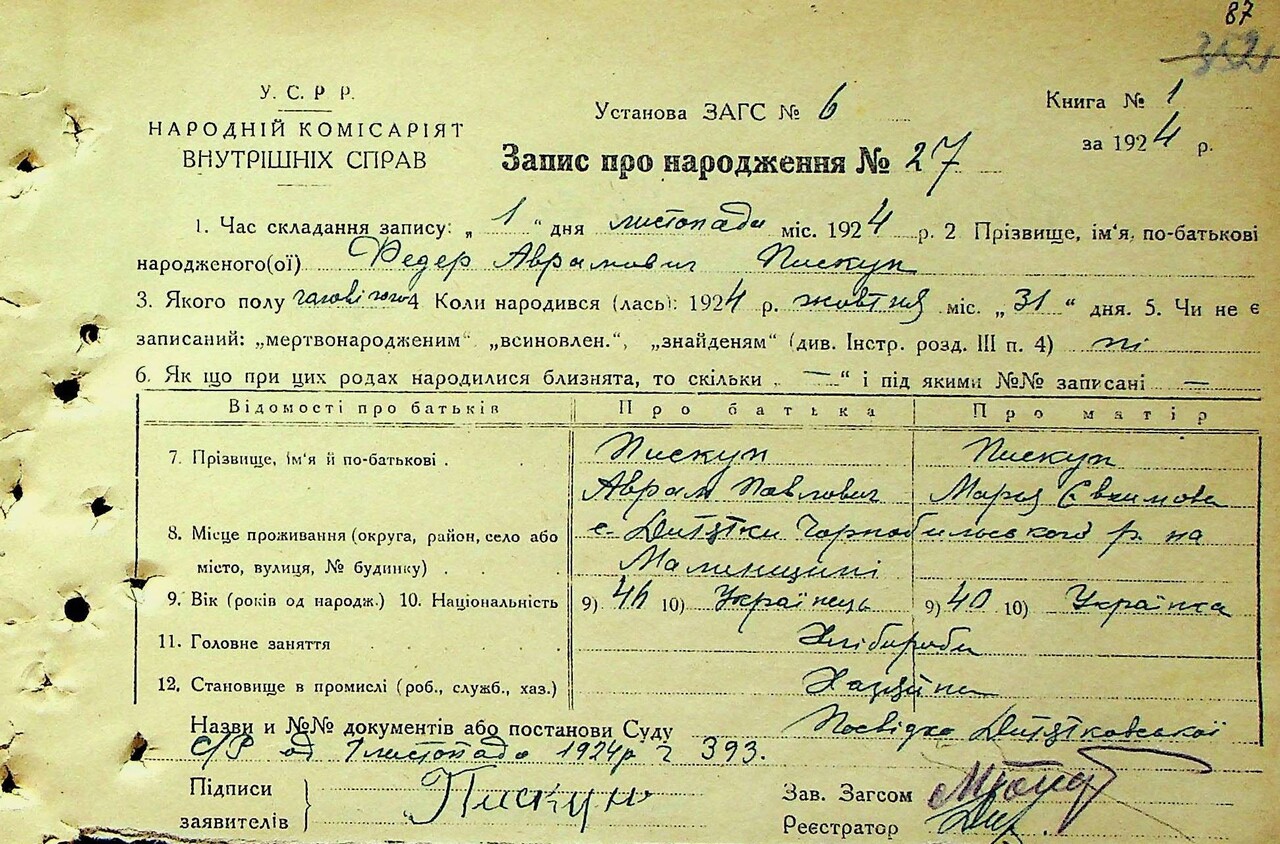 87
352
У. С. Р Р.
НАРОДНІЙ КОМІСАРІЯТ
ВНУТРІШНІХ СПРАВ
Установа ЗАГС № 6
Книга № 1
за 1924 р.
Запис про народження № 27
1. Час складання запису: „ 1 “ дня листопада міс. 1924 р. 2 Прізвище, ім'я, по-батькові
народженого(ої) Федер Аврамович Пискун
3. Якого полу чоловічого 4 Коли народився (лась): 1924 р. жовтня міс. „ 31 “ дня. 5. Чи не є
записаний: „мертвонародженим“ „всиновлен.“, „знайденям“ (див. Інстр. розд. III п. 4) ні
6. Як що при цих родах народилися близнята, то скільки „ — “ і під якими №№ записані —
Відомості про батьків Про батька Про матір
7. Прізвище, ім'я й по-батькові . Пискун Пискун
Аврам Павлович Мария Євхимова
8. Місце проживання (округа, район, село або с. Дитятки Чорнобильського р. на
місто, вулиця, № будинку) . Малинщині
9. Вік (років од народж.) 10. Національність 9) 46 10) Українець 9) 40 10) Українка
11. Головне заняття Хлібороби
12. Становище в промислі (роб., служб., хаз.)
Назви и №№ документів або постанови Суду Посвідка Дитятковської
С/Р од 1 листопада 1924 р ч 393.
Підписи
заявителів
Пискун
Зав. Загсом
Реєстратор